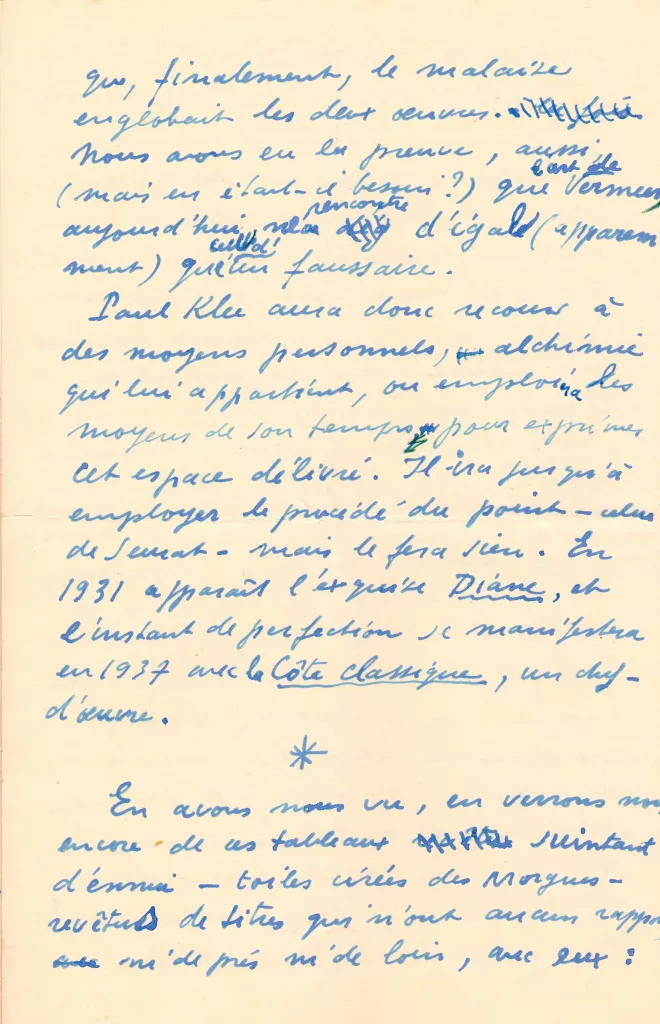 que, finalement, le malaise
englobait les deux œuvres.
Nous avons eu la preuve, aussi
(mais en était-il besoin?) que l'art de Vermeer
aujourd'hui, n'a rencontré d'égal (apparem
ment) que celui d'un faussaire.
Paul Klee aura donc recours à
des moyens personnels, alchimie
qui lui appartient, ou emploiera les
moyens de son temps pour exprimer
cet espace délivré. Il ira jusqu'à
employer le procédé du point - celui
de Seurat - mais le fera sien. En
1931 apparaît l'exquise Diane, et
l'instant de perfection se manifestera
en 1937 avec la Côte classique, un chef-
d'œuvre.
*
En avons nous vu, en verrons nous
encore de ces tableaux suintant
d'ennui - toiles cirées des Morgues -
revêtus de titres qui n'ont aucun rapport
ni de près ni de loin, avec eux :